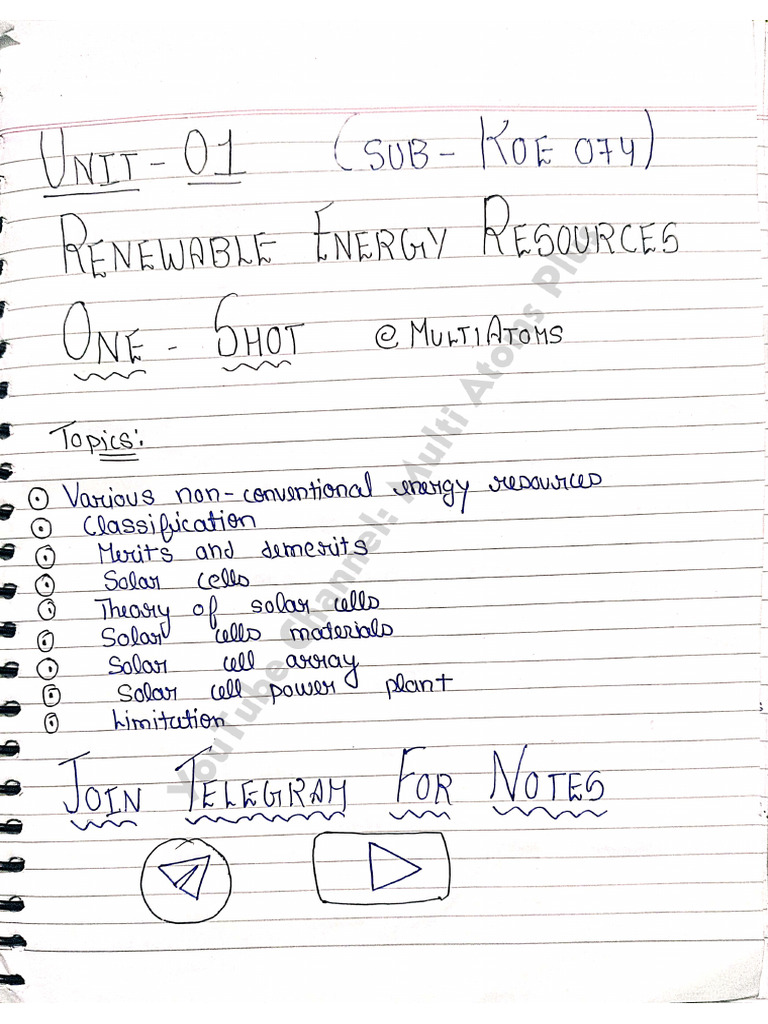 UNIT - 01 (SUB - KOE 074)
RENEWABLE ENERGY RESOURCES
ONE - SHOT @ MULTIATOMS
Topics:
Various non-conventional energy resources
Classification
Merits and demerits
Solar cells
Theory of solar cells
Solar cells materials
Solar cell array
Solar cell power plant
Limitation
JOIN TELEGRAM FOR NOTES
YouTube Channel: Multi Atoms Plus